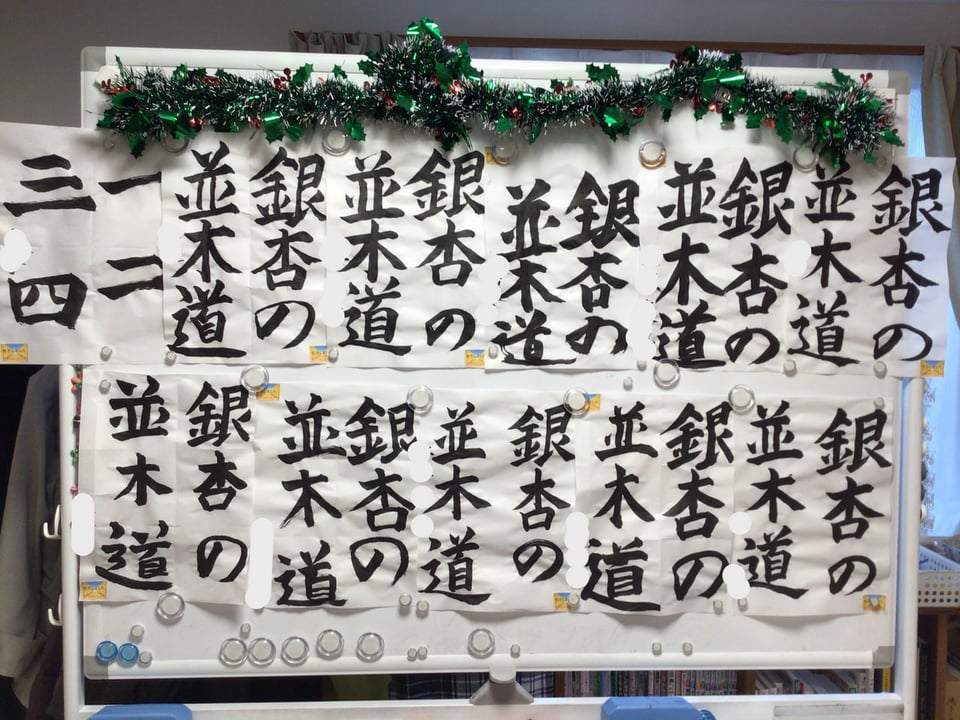 銀杏の
並木道
銀杏の
並木道
銀杏の
並木道
銀杏の
並木道
銀杏の
並木道
一二
三四
銀杏の
並木道
銀杏の
並木道
銀杏の
並木道
銀杏の
並木道
銀杏の
並木道